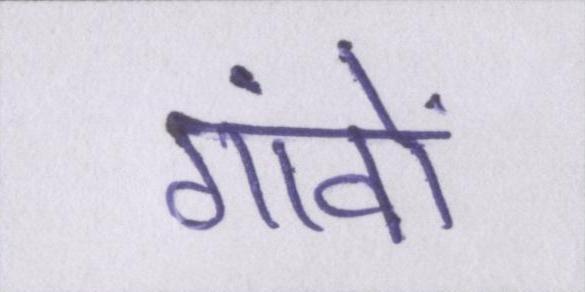 गांवों